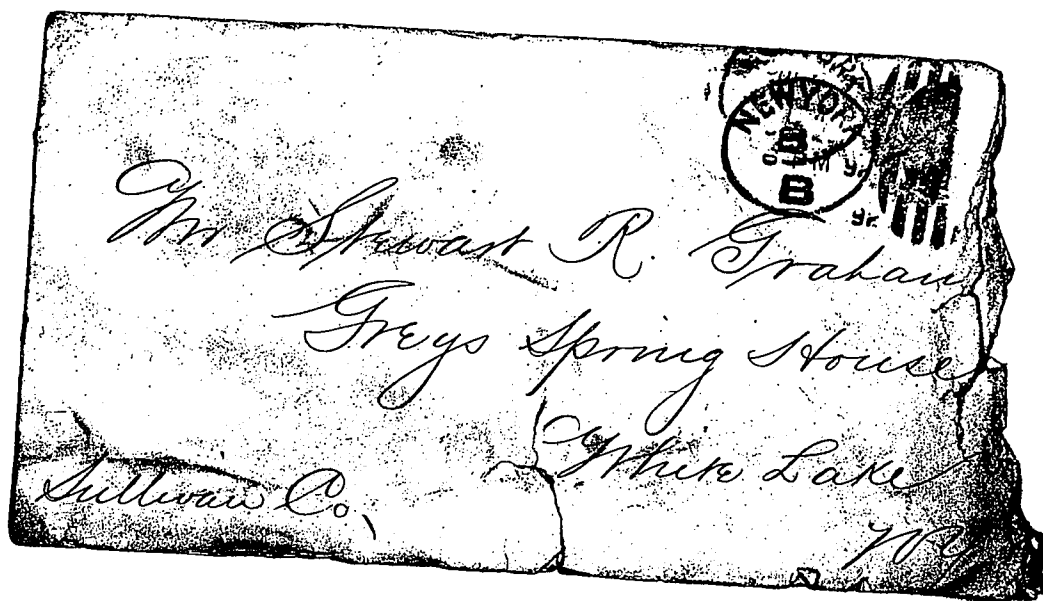 NEW YORK
B
Mr Stewart R. Graham
Greys Spring House
White Lake
Sullivan Co.